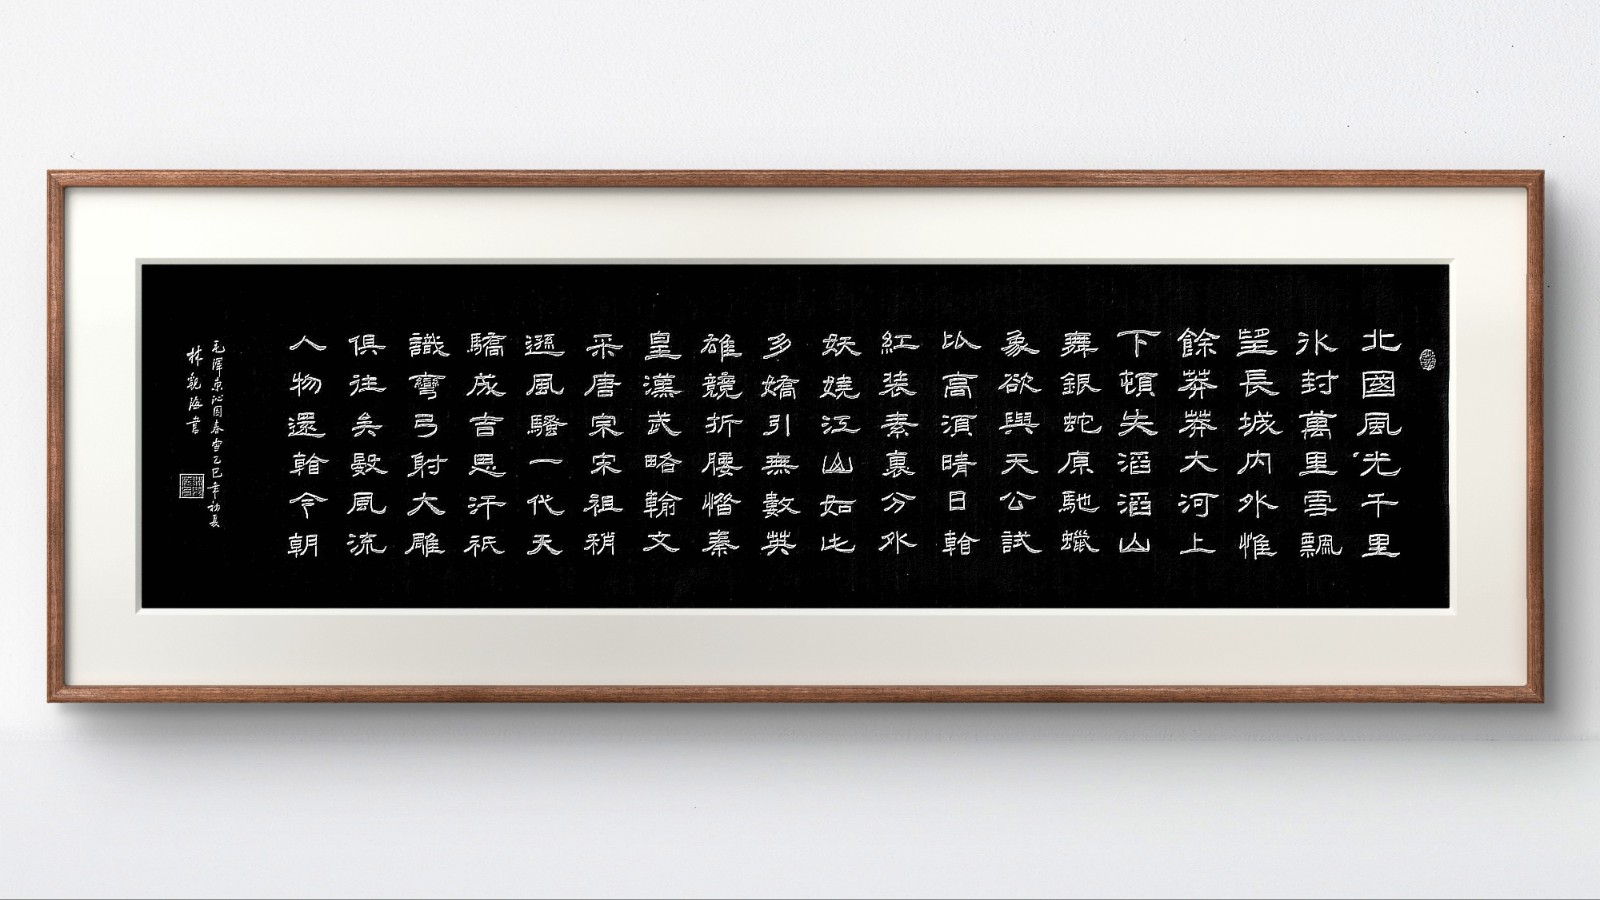 北國風光千里
氷封萬里雪飄
望長城内外惟
餘莽莽大河上
下頓失滔滔山
舞銀蛇原馳蠟
象欲與天公試
比高須晴日看
紅装素裹分外
妖嬈江山如此
多嬌引無數英
雄競折腰惜秦
皇漢武略輸文
采唐宗宋祖稍
遜風騷一代天
驕成吉思汗祇
識彎弓射大雕
俱往矣數風流
人物還看今朝
毛澤東沁园春雪乙巳年初夏
林觀海書